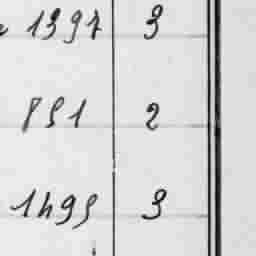 1397 3
851 2
1499 3